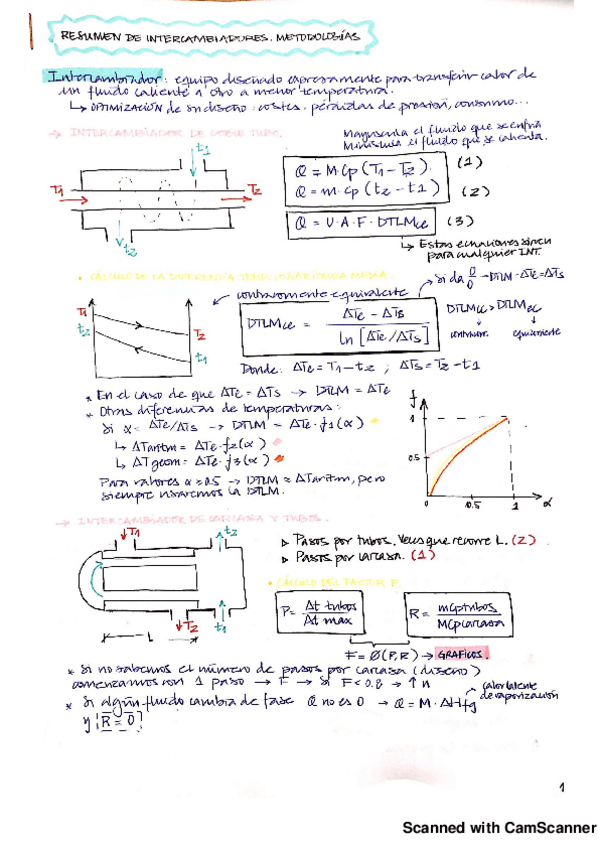 RESUMEN DE INTERCAMBIADORES. METODOLOGÍAS
Intercambiador: equipo diseñado expresamente para transferir calor de
un fluido caliente a otro a menor temperatura.
↳ OPTIMIZACIÓN de su diseño: costes, pérdidas de presión, consumo...
→ INTERCAMBIADOR DE DOBLE TUBO.
Mayúscula el fluido que se enfría
Minúscula el fluido que se calienta.
t1
T1
T2
t2
Q = M·Cp (T1 - T2). (1)
Q = m·cp (t2 - t1) (2)
Q = U·A·F·DTLMcc (3)
↳ Estas ecuaciones sirven
para cualquier INT.
• CÁLCULO DE LA DIFERENCIA TEMP. LOGARÍTMICA MEDIA.
contracorriente equivalente
si da 0/0 → DTLM = ΔTe = ΔTs
T1
t2
T2
t1
DTLMcc = ΔTe - ΔTs / ln [ΔTe/ΔTs]
DTLMcc > DTLMec
contracorr. equicorriente
Donde: ΔTe = T1 - t2 ; ΔTs = T2 - t1
* En el caso de que ΔTe = ΔTs → DTLM = ΔTe
* Otras diferencias de temperaturas:
Si α = ΔTe/ΔTs → DTLM = ΔTe · f1(α)
↳ ΔTaritm = ΔTe · f2(α)
↳ ΔTgeom = ΔTe · f3(α)
Para valores α ≥ 0.5 → DTLM ≈ ΔTaritm, pero
siempre usaremos la DTLM.
f
1
0.5
0
0.5
1
α
→ INTERCAMBIADOR DE CARCASA Y TUBOS.
T1
t2
T2
t1
L
▷ Pasos por tubos. Veces que recorre L. (2)
▷ Pasos por carcasa. (1)
• CÁLCULO DEL FACTOR F
P = Δt tubos / Δt max
R = mCp tubos / MCp carcasa
F = Ø(P,R) → GRÁFICOS.
* Si no sabemos el número de pasos por carcasa (diseño)
comenzamos con 1 paso → F → Si F < 0.8 → ↑ n
* Si algún fluido cambia de fase Q no es 0 → Q = M · ΔHfg
calor latente
de vaporización
y ¡R = 0!
1
Scanned with CamScanner